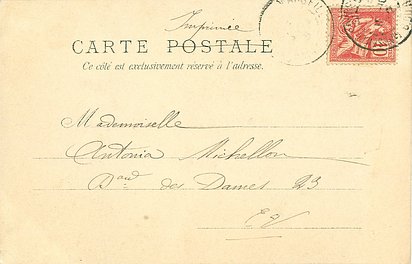 Imprimée
CARTE POSTALE
Ce côté est exclusivement réservé à l'adresse.
Mademoiselle
Antonia Michellon
Bard des Dames 23
10